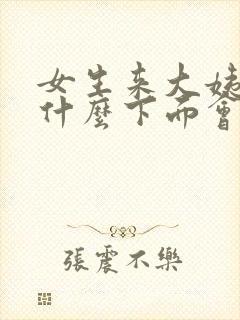 女生来大姨
什麼下面會
張震不樂